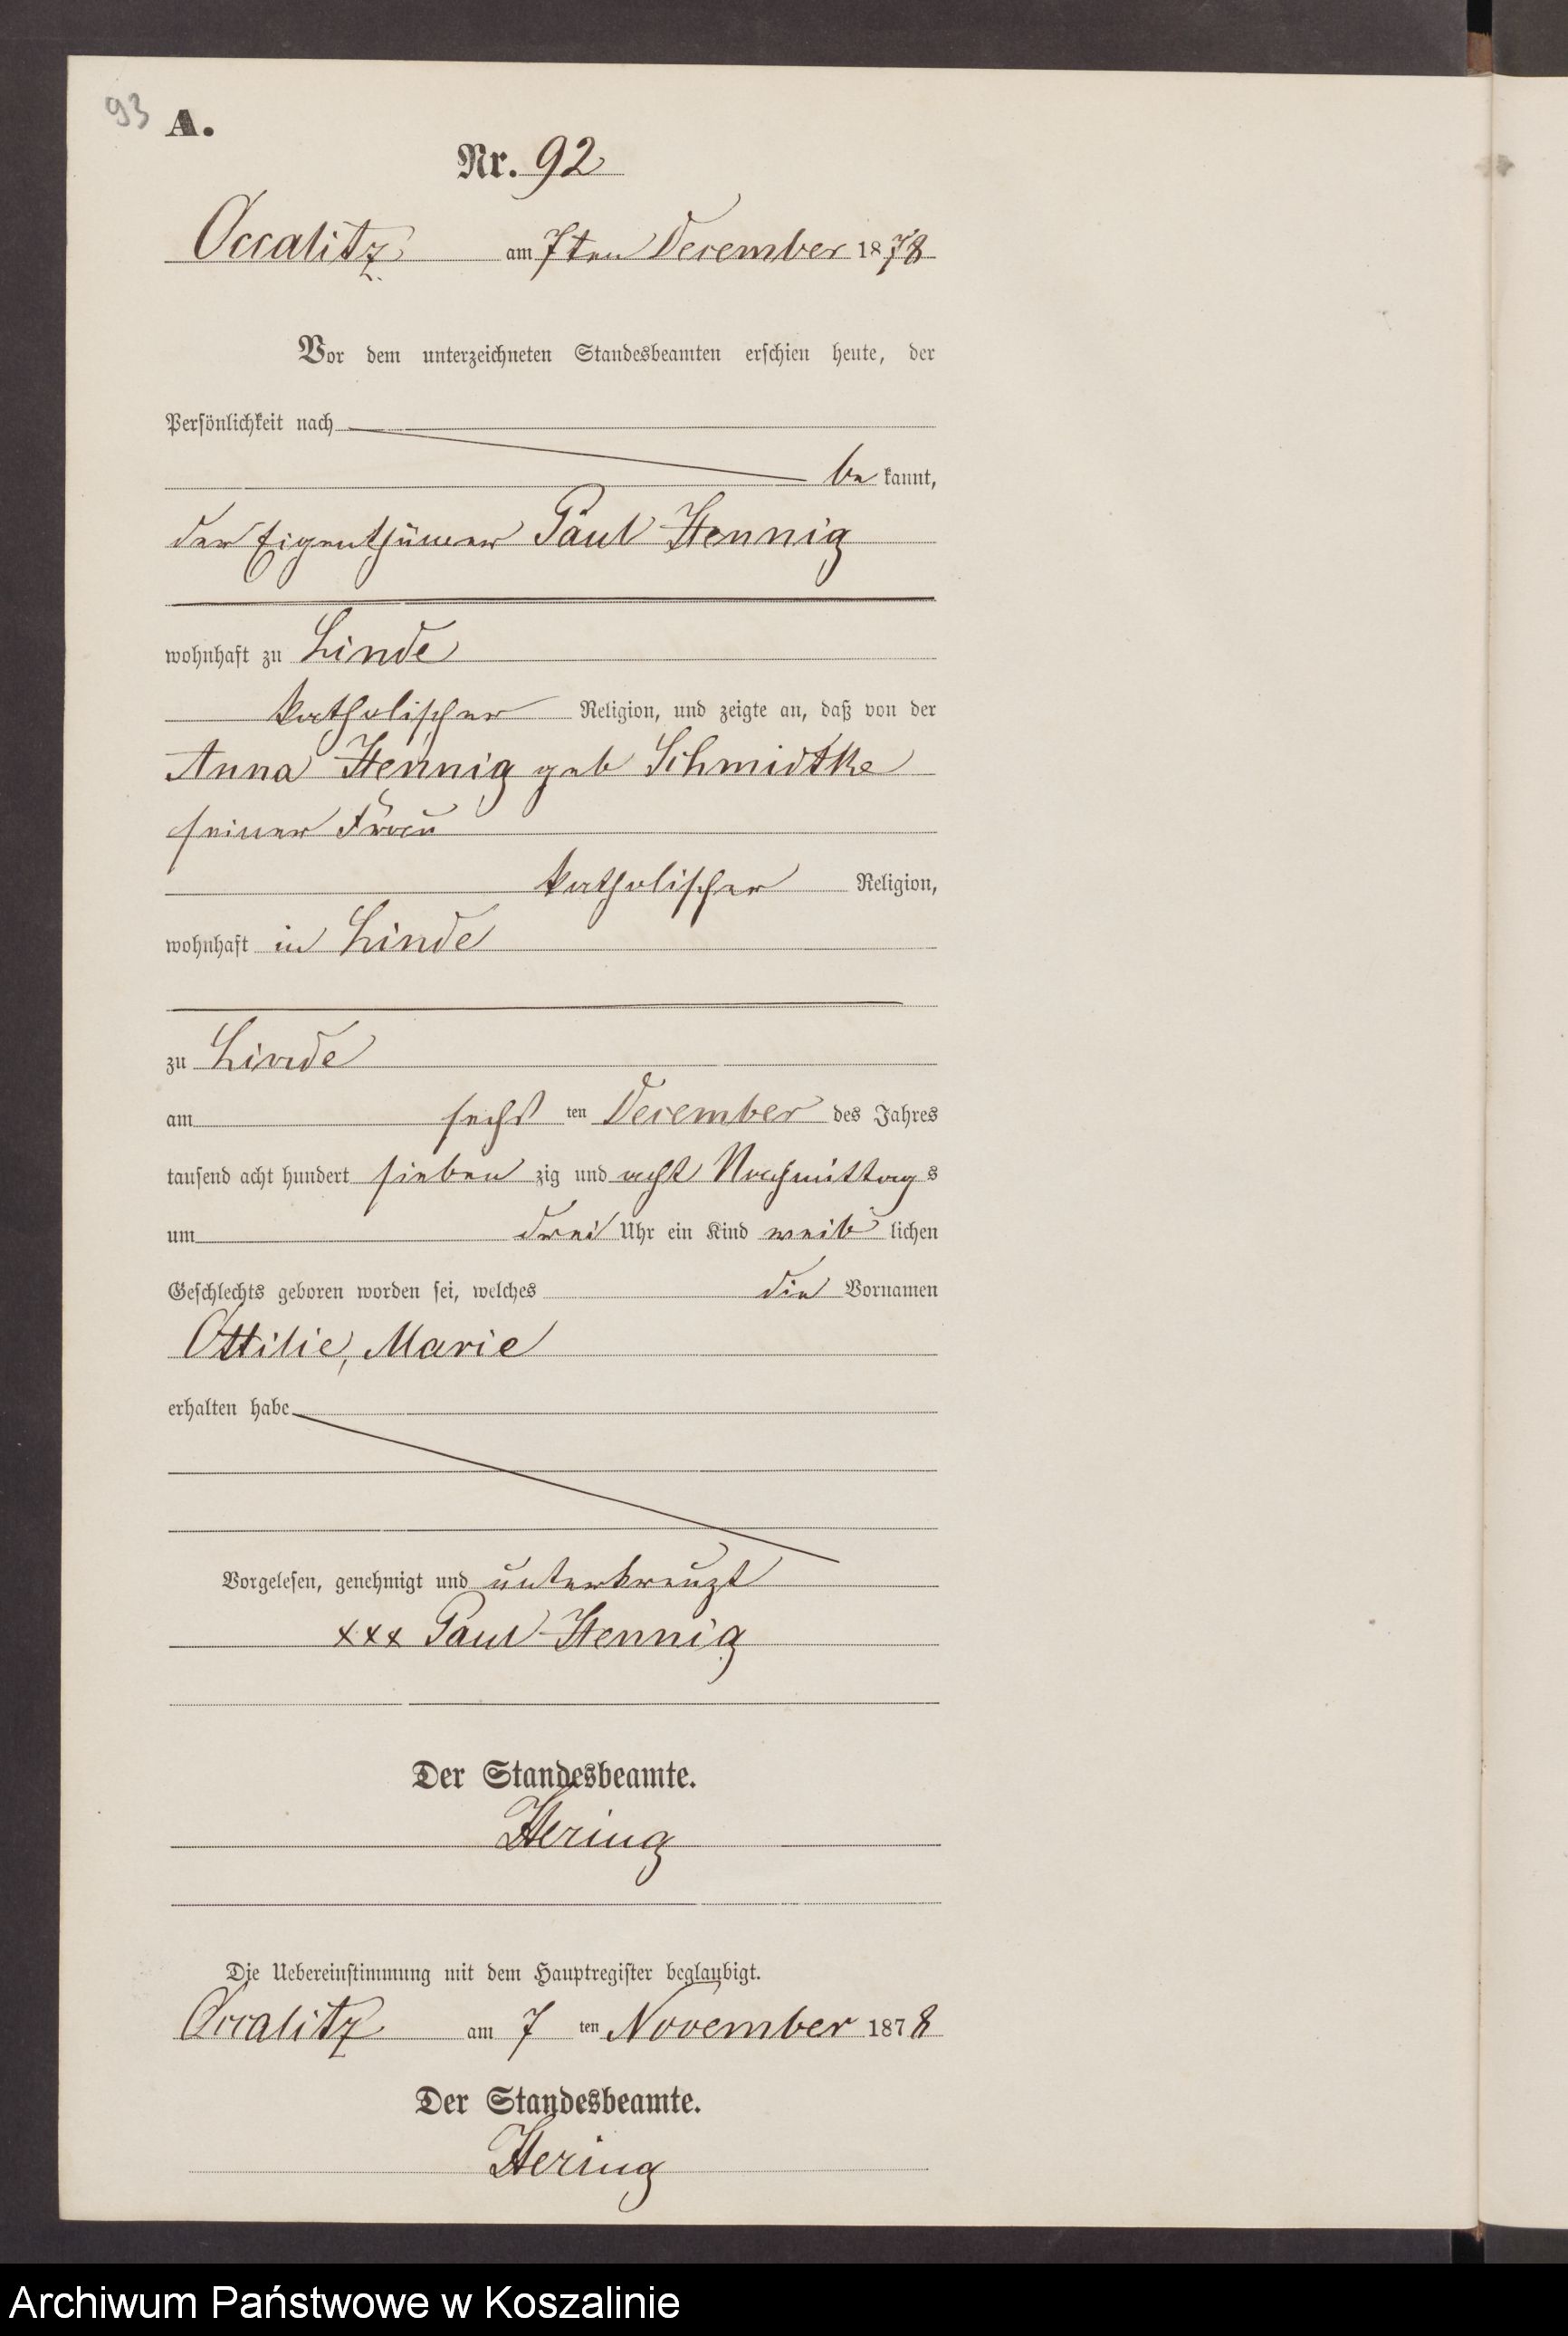 93 A.
Nr. 92
Occalitz am 7ten December 1878
Vor dem unterzeichneten Standesbeamten erschien heute, der
Persönlichkeit nach
be kannt,
der Eigenthümer Paul Hennig
wohnhaft zu Linde
katholischer Religion, und zeigte an, daß von der
Anna Hennig geb Schmidtke
seiner Frau
katholischer Religion,
wohnhaft in Linde
zu Linde
am sechs ten December des Jahres
tausend acht hundert sieben zig und acht Nachmittag s
um drei Uhr ein Kind weib lichen
Geschlechts geboren worden sei, welches die Vornamen
Ottilie, Marie
erhalten habe
Vorgelesen, genehmigt und unterkreuzt
xxx Paul Hennig
Der Standesbeamte.
Hering
Die Uebereinstimmung mit dem Hauptregister beglaubigt.
Occalitz am 7 ten November 1878
Der Standesbeamte.
Hering
Archiwum Państwowe w Koszalinie